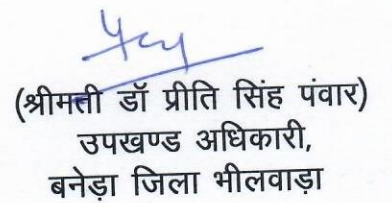 (श्रीमती डॉ प्रीति सिंह पंवार)
उपखण्ड अधिकारी,
बनेड़ा जिला भीलवाड़ा